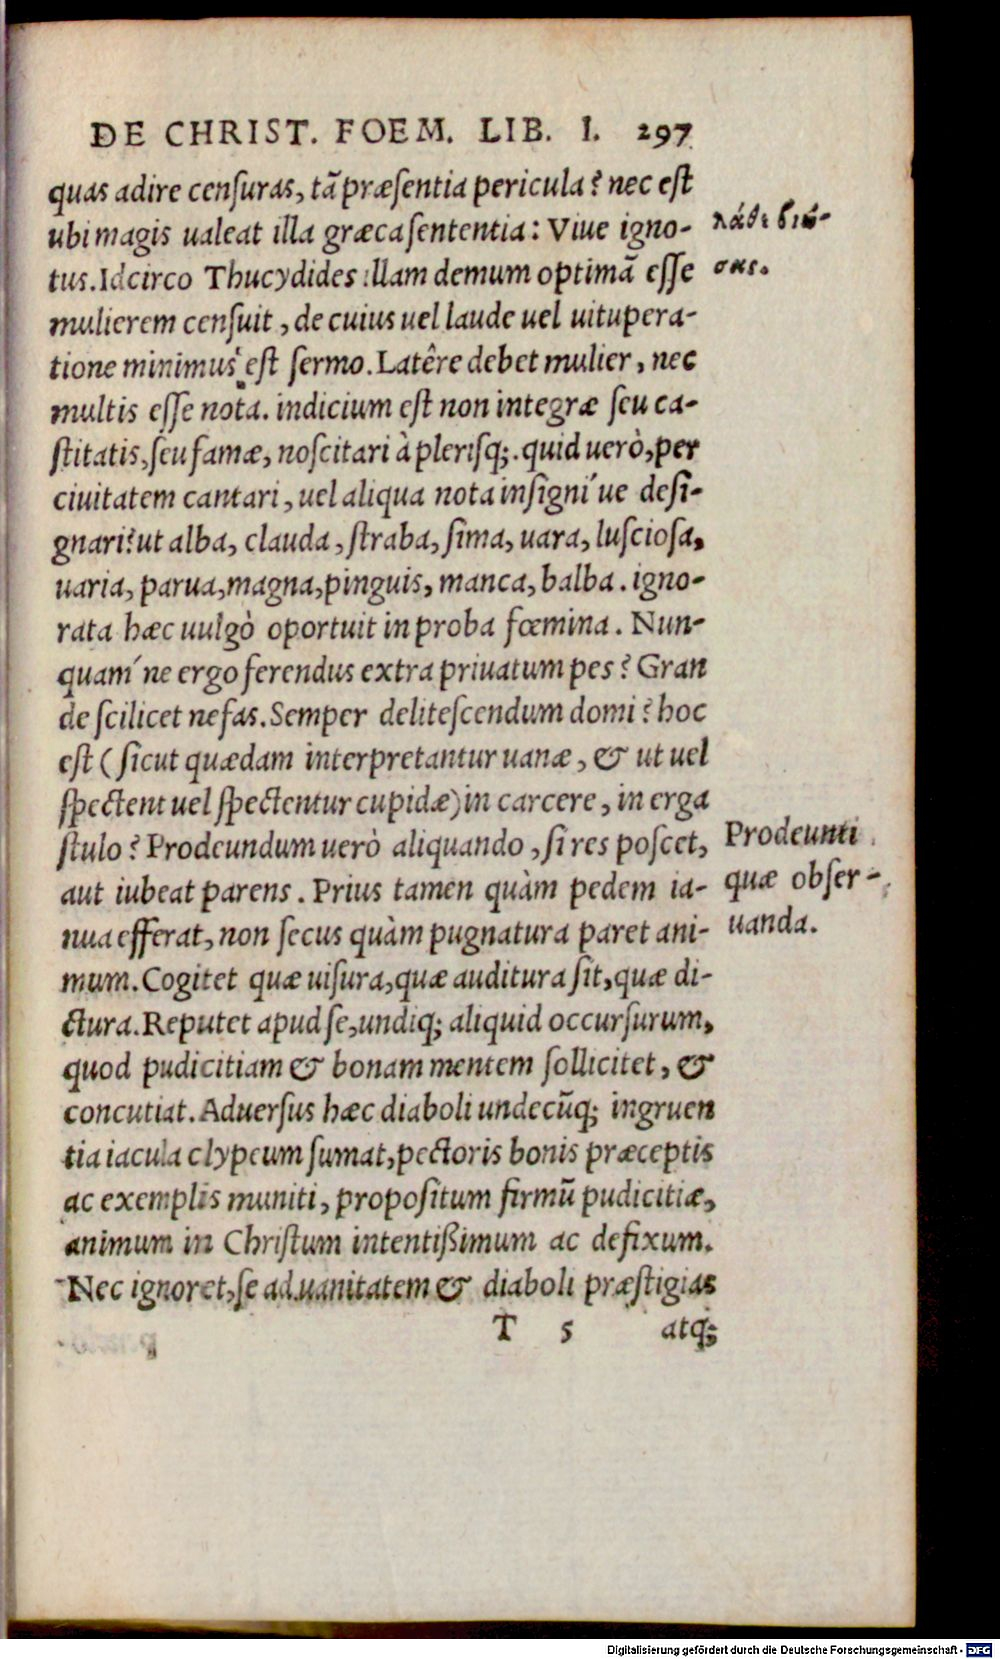 DE CHRIST. FOEM. LIB. I. 297
quas adire censuras, tā præsentia pericula? nec est
ubi magis ualeat illa græca sententia: Viue igno-
tus. Idcirco Thucydides illam demum optimā esse
mulierem censuit, de cuius uel laude uel uitupera-
tione minimus est sermo. Latêre debet mulier, nec
multis esse nota. indicium est non integræ seu ca-
stitatis, seu famæ, noscitari à plerisq;. quid uerò, per
ciuitatem cantari, uel aliqua nota insigni´ue desi-
gnari? ut alba, clauda, straba, sima, uara, lusciosa,
uaria, parua, magna, pinguis, manca, balba. igno-
rata hæc uulgò oportuit in proba fœmina. Nun-
quam´ne ergo ferendus extra priuatum pes? Gran
de scilicet nefas. Semper delitescendum domi? hoc
est (sicut quædam interpretantur uanæ, & ut uel
spectent uel spectentur cupidæ) in carcere, in erga
stulo? Prodeundum uerò aliquando, si res poscet,
aut iubeat parens. Prius tamen quàm pedem ia-
nua efferat, non secus quàm pugnatura paret ani-
mum. Cogitet quæ uisura, quæ auditura sit, quæ di-
ctura. Reputet apud se, undiq; aliquid occursurum,
quod pudicitiam & bonam mentem sollicitet, &
concutiat. Aduersus hæc diaboli undecūq; ingruen
tia iacula clypeum sumat, pectoris bonis præceptis
ac exemplis muniti, propositum firmū pudicitiæ,
animum in Christum intentißimum ac defixum.
Nec ignoret, se ad uanitatem & diaboli præstigias
T 5 atq;
λάθε βιώ-
σας.
Prodeunti
quæ obser-
uanda.
Digitalisierung gefördert durch die Deutsche Forschungsgemeinschaft - DFG